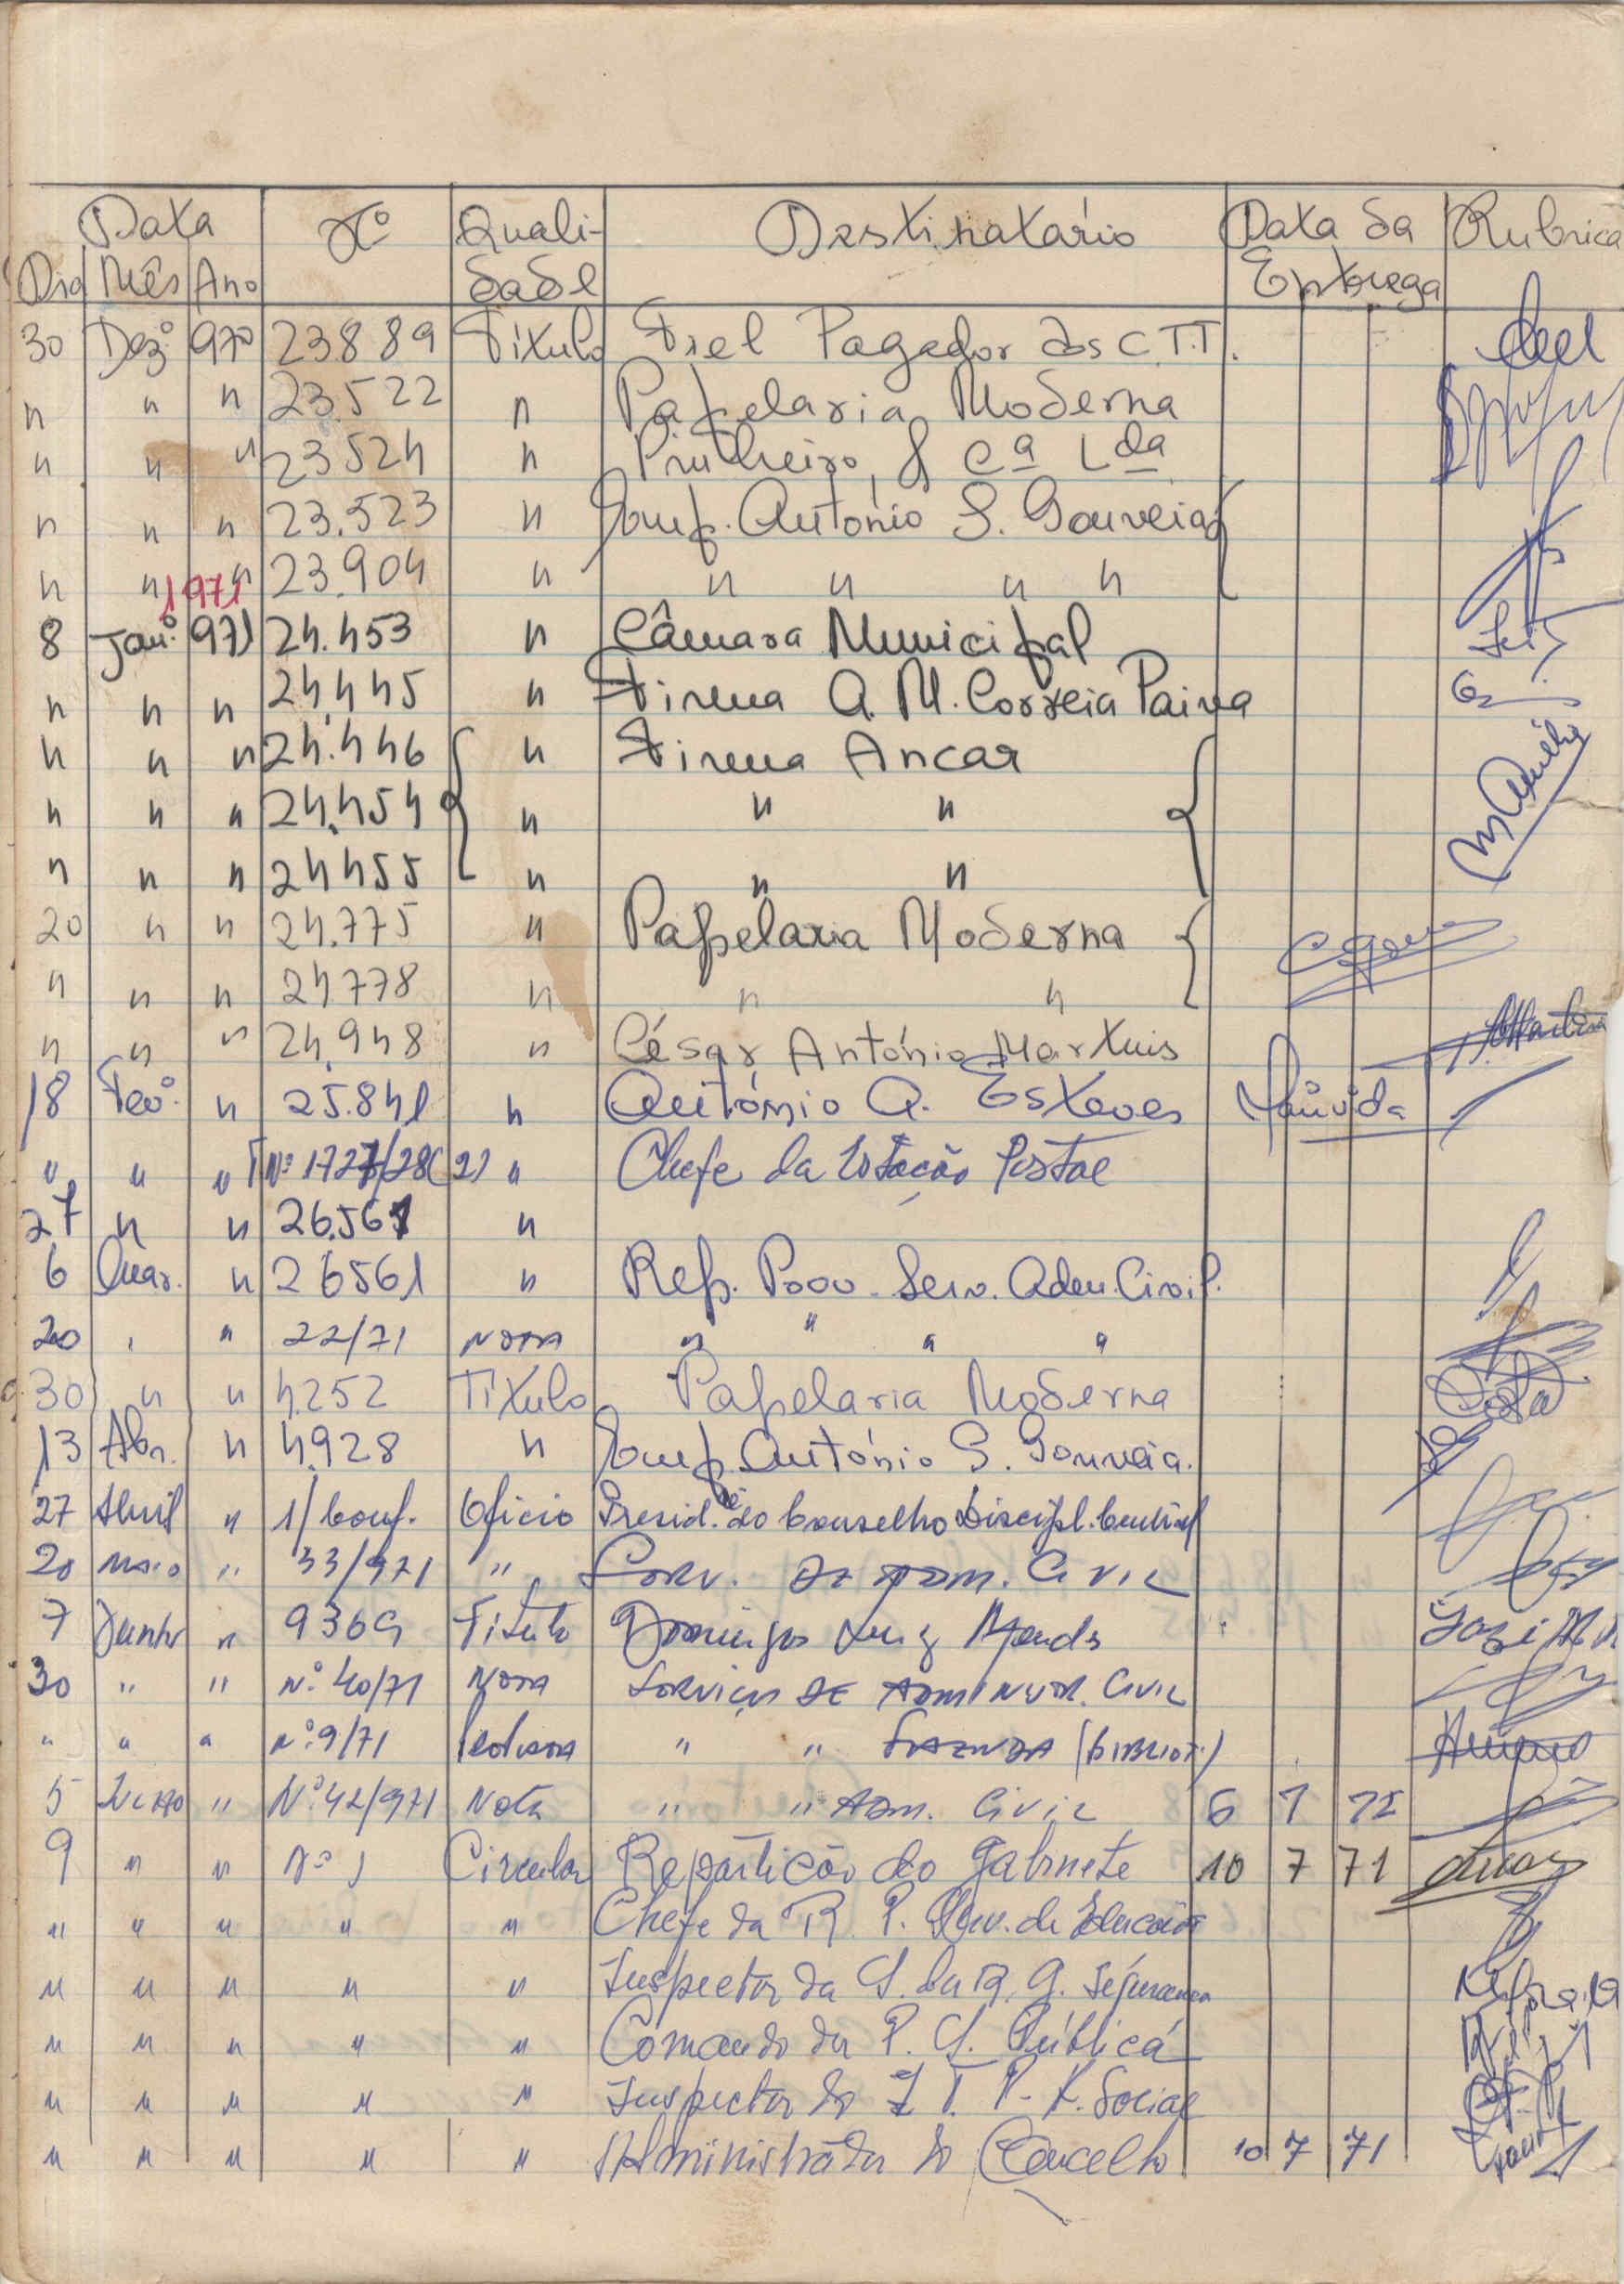 Data Nº Quali- Destinatário Data da Rubrica
Dia Mês Ano dade Entrega
30 Dezº 970 23889 Título Fiel Pagador dos C.T.T.
" " " 23.522 " Papelaria Moderna
" " " 23524 " Pinheiro, & Cª Lda
" " " 23.523 " Comp. António S. Gouveia
" " " 23.904 " " " " "
1971
8 Janº 971 24.453 " Câmara Municipal
" " " 24.445 " Firma A. M. Correia Paiva
" " " 24.446 " Firma Ancar
" " " 24.454 " " "
" " " 24455 " " "
20 " " 24.775 " Papelaria Moderna
" " " 24.778 " " "
" " " 24.948 " César António Martins
18 Fevº " 25.841 " António A. Esteves
" " " Nº 1727/28(2) " Chefe da Estação Postal
27 " " 26.561 "
6 Mar. " 26561 " Rep. Prov. Serv. Adm. Civil.
20 " " 22/71 Nota " " " "
30 " " 4.252 Título Papelaria Moderna
13 Abr. " 4.928 " Comp. António S. Gouveia.
27 Abril " 1/Conf. Ofício Presid.te do Conselho Discipl. Central
20 Maio " 33/971 " Serv. de Adm. Civil
7 Junho " 9369 Título Domingos Luiz Mendes
30 " " Nº 40/71 Nota Serviços de Administr. Civil
" " " Nº 9/71 " " Fazenda (Bibliot.)
5 Julho " Nº 42/971 Nota " " Adm. Civil 6 7
9 " " Nº 1 Circular Repartição do Gabinete 10 7 71
" " " " " Chefe da R. P. Serv. de Educação
" " " " " Inspector da Segurança
" " " " " Comando da P. S. Pública
" " " " " Inspector do I. T. P. Social
" " " " " Administrador do Concelho 10 7 71